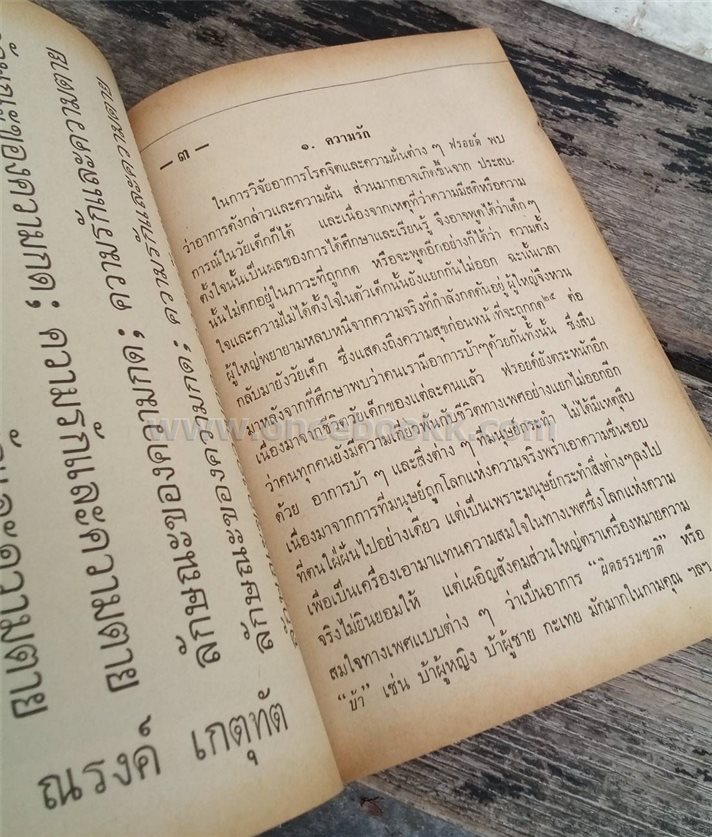 ลักษณะของความกด; ความรักและความตาย
ลักษณะของความกด; ความรักและความตาย
ลักษณะของความกด; ความรักและความตาย
ลักษณะของความกด; ความรักและความตาย
ณรงค์ เกตุทัต
— ๓ —
๑. ความรัก
ในการวิจัยอาการโรคจิตและความฝันต่าง ๆ ฟรอยด์ พบ
ว่าอาการดังกล่าวและความฝัน ส่วนมากอาจเกิดขึ้นจาก ประสบ-
การณ์ในวัยเด็กก็ได้ และเนื่องจากเหตุที่ว่าความมีสติหรือความ
ตั้งใจนั้นเป็นผลของการได้ศึกษาและเรียนรู้ จึงอาจพูดได้ว่าเด็กๆ
นั้นไม่ตกอยู่ในภาวะที่ถูกกด หรือจะพูดอีกอย่างก็ได้ว่า ความตั้ง
ใจและความไม่ได้ตั้งใจในตัวเด็กนั้นยังแยกกันไม่ออก ฉะนั้นเวลา
ผู้ใหญ่พยายามหลบหนีจากความจริงที่กำลังกดดันอยู่ ผู้ใหญ่จึงหวน
กลับมายังวัยเด็ก ซึ่งแสดงถึงความสุขก่อนหน้า ที่จะถูกกด๒๕ ต่อ
มาหลังจากที่ศึกษาพบว่าคนเรามีอาการบ้าๆด้วยกันทั้งนั้น ซึ่งสืบ
เนื่องมาจากชีวิตวัยเด็กของแต่ละคนแล้ว ฟรอยด์ยังตระหนักอีก
ว่าคนทุกคนยังมีความเกี่ยวพันกับชีวิตทางเพศอย่างแยกไม่ออกอีก
ด้วย อาการบ้า ๆ และสิ่งต่าง ๆ ที่มนุษย์กระทำ ไม่ได้มีเหตุสืบ
เนื่องมาจากการที่มนุษย์ถูกโลกแห่งความจริงพรากเอาความชื่นชอบ
ที่ตนใฝ่ฝันไปอย่างเดียว แต่เป็นเพราะมนุษย์กระทำสิ่งต่างๆลงไป
เพื่อเป็นเครื่องเอามาแทนความสมใจในทางเพศซึ่งโลกแห่งความ
จริงไม่ยินยอมให้ แต่เผอิญสังคมส่วนใหญ่ตราเครื่องหมายความ
สมใจทางเพศแบบต่าง ๆ ว่าเป็นอาการ “ผิดธรรมชาติ” หรือ
“บ้า” เช่น บ้าผู้หญิง บ้าผู้ชาย กะเทย มักมากในกามคุณ ฯลฯ
www.oncebookk.com